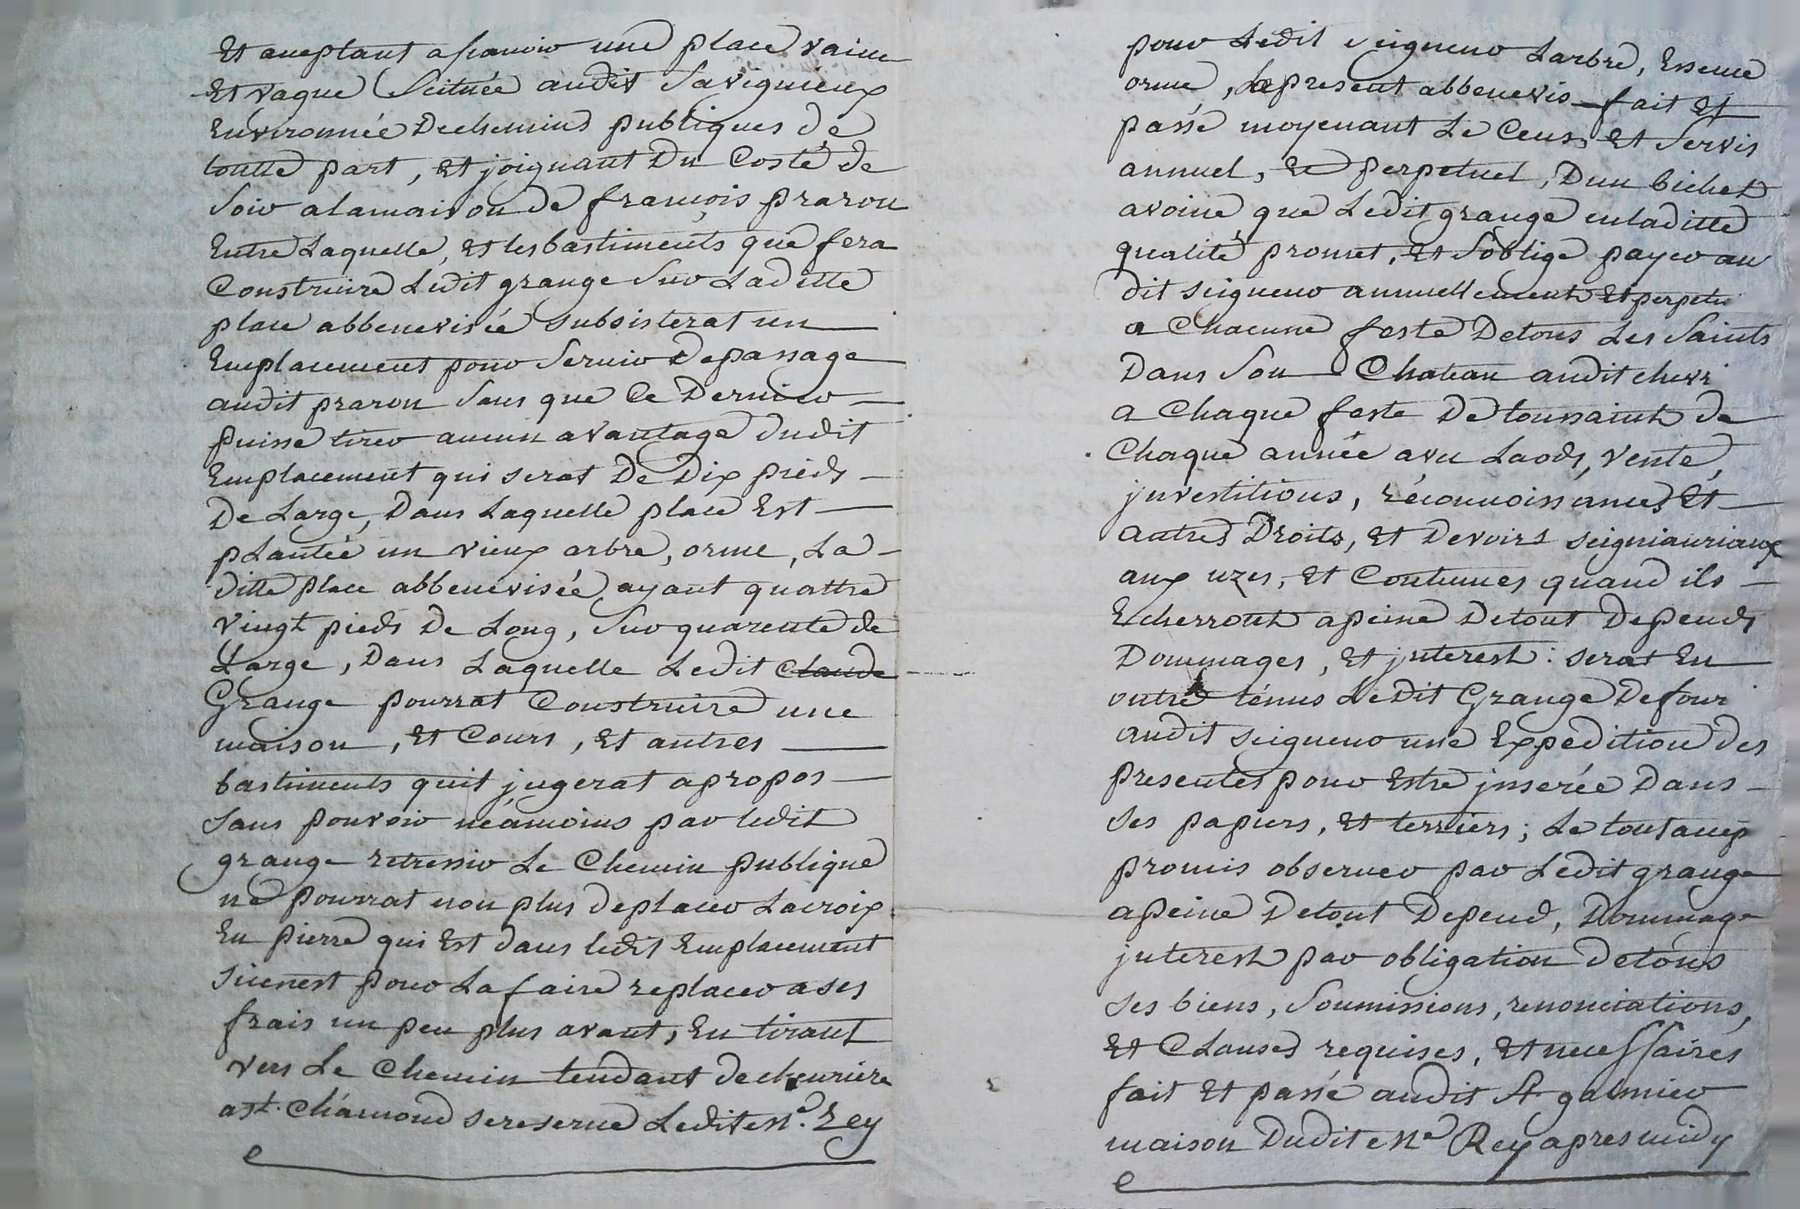 Et aceptant ascavoir une place vaine
Et vague Scituée audit Savignieux
Environnée De chemins publiques de
toutte part, et joignant Du Costé de
Soir a la maison de françois praron
Entre Laquelle, et les bastiments que fera
Construire Ledit grange Sur Laditte
place abbenevisée subsisterat un
Emplacement pour Servir De passage
audit praron Sans que Ce Dernier
puisse tirer aucun avantage dudit
Emplacement qui serat De Dix pieds
De Large, Dans Laquelle place Est
plantée un vieux arbre, orme, La
ditte place abbenevisée, ayant quattre
vingt pieds De Long, Sur quarente de
Large, Dans Laquelle Ledit Claude
Grange pourrat Construire une
maison, et Cours, et autres
bastiments quil jugerat a propos
Sans pouvoir néamoins par ledit
grange retressir Le Chemin publique
ne pourrat non plus deplacer La croix
En pierre qui Est dans ledit Emplacement
si cenest pour La faire replacer a ses
frais un peu plus avant, En tirant
vers Le Chemin tendant de cheuriere
a St. Chamond se reserve Ledit Me. Rey
pour Ledit seigneur L'arbre, Essence
orme, Le present abbenevis fait Et
passé moyenant Le Cens, et Servis
annuel, et perpetuel, D'un bichet
avoine que Ledit grange en laditte
qualité promet, et S'oblige payer au
dit seigneur annuellement et perpetu
a Chacune feste De tous Les Saints
Dans Son Chateau audit chevri
a Chaque feste De toussaint de
Chaque année avec Laods, vente,
jnvestitions, réconnoissances Et
autres Droits, et Devoirs seigniauriaux
aux uzes, et Contumes quand ils
Echerront a peine De tout Depends
Dommages, et jnterest : serat En
outre ténus Ledit Grange De four
audit seigneur une Expedition des
presentes pour Estre jnserée Dans
ses papiers, et terriers; Le tout
promis observer par Ledit grange
a peine De tout Depend, Dommage
jnterest par obligation De tous
ses biens, Soumissions, renonciations,
et Clauses requises, et necessaires
fait Et passé audit St galmier
maison Dudit Me Rey apres midy